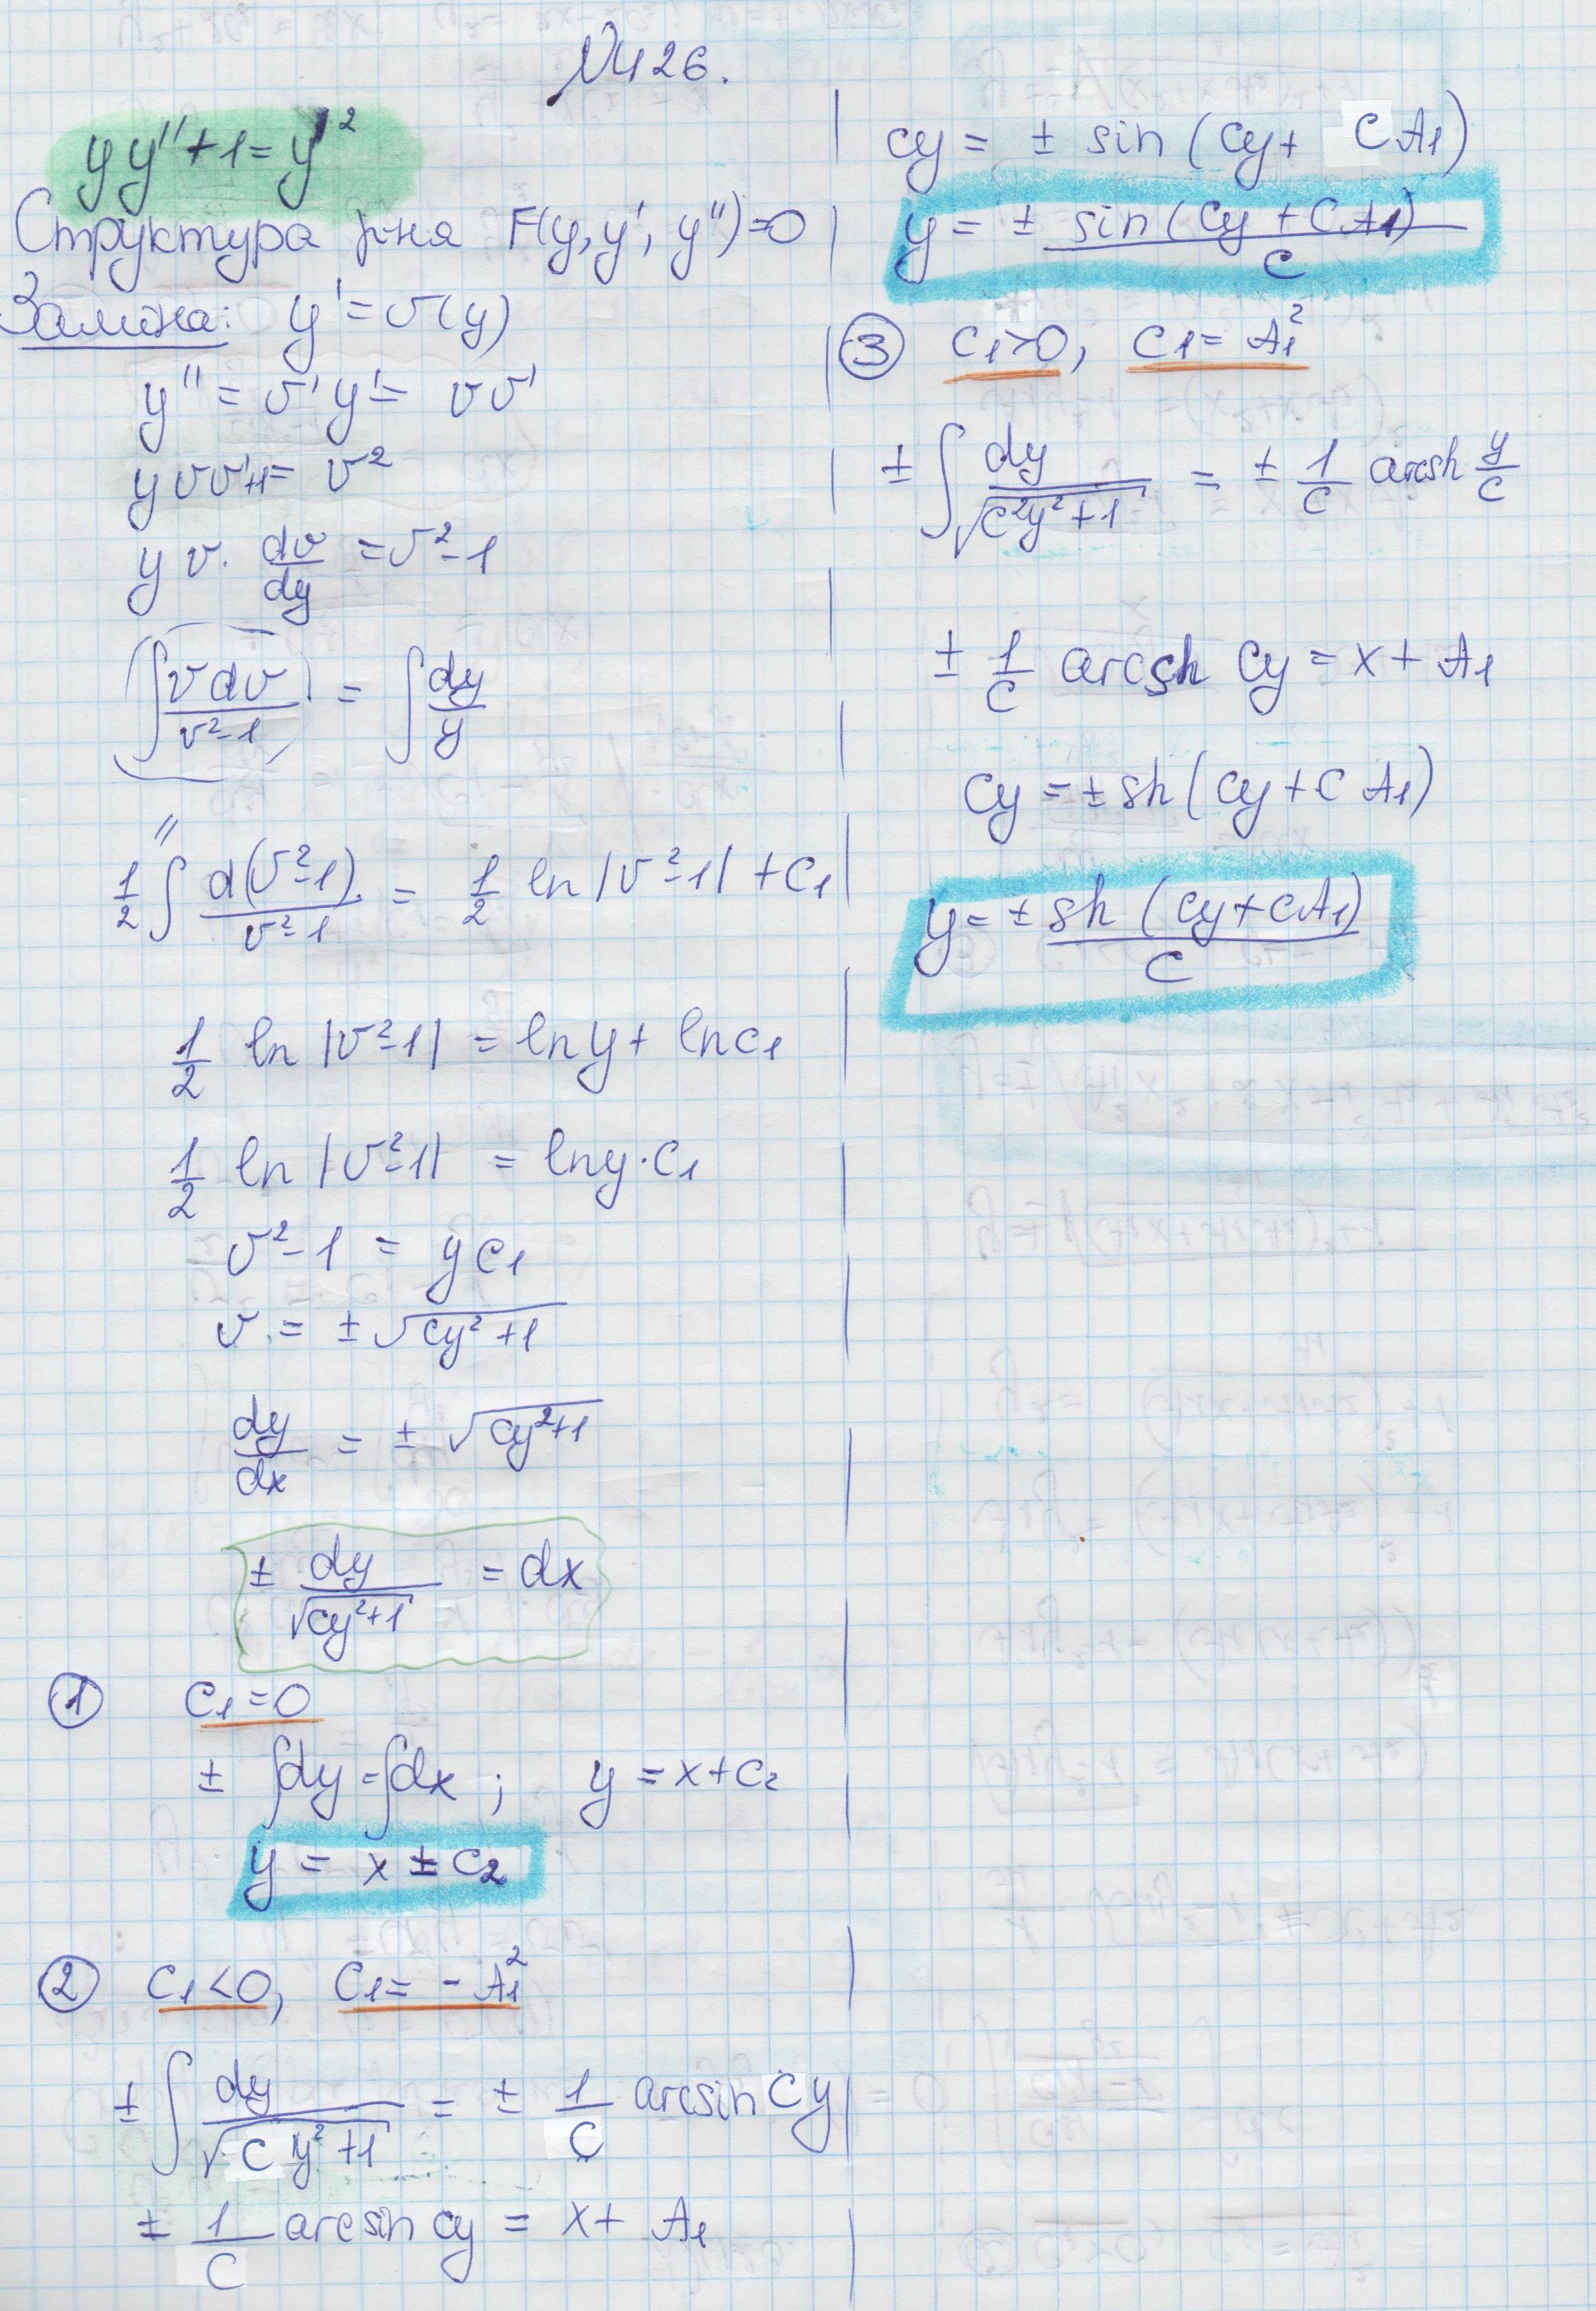 №426.
yy''+1=y'²
Структура р-ня F(y,y', y'')=0
Заміна: y'=v(y)
y''= v'y'= vv'
yvv'+1= v²
yv·dv/dy=v²-1
∫vdv/(v²-1) = ∫dy/y
"
1/2∫d(v²-1)/(v²-1) = 1/2 ln|v²-1|+C₁
1/2 ln|v²-1| = lny+ lnC₁
1/2 ln|v²-1| = lny·C₁
v²-1 = yC₁
v = ±√(Cy²+1)
dy/dx = ± √(Cy²+1)
± dy/√(Cy²+1) = dx
① C₁=0
± ∫dy=∫dx; y=x+C₂
y = x ± C₂
② C₁<0, C₁= -A₁²
±∫dy/√(Cy²+1) = ± 1/C arcsin Cy
± 1/C arcsin Cy = x+ A₁
Cy= ± sin(Cy+ CA₁)
y= ± sin(Cy+CA₁)/C
③ C₁>0, C₁= A₁²
±∫dy/√(C²y²+1) = ± 1/C arcsh y/C
± 1/C arcsh Cy=x+ A₁
Cy=±sh(Cy+CA₁)
y=± sh(Cy+CA₁)/C